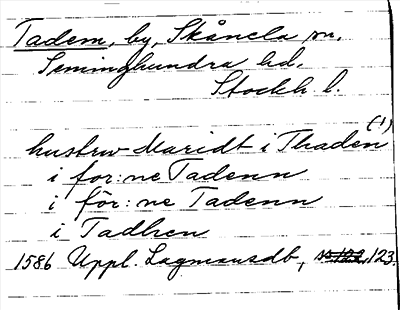 Tadem, by, Skånela sn,
Seminghundra hd,
Stockh. l.
(1)
hustrw Maridt i Thaden
i for:ne Tadenn
i för:ne Tadenn
i Tadhen
1586 Uppl. Lagmansdb, s. 122, 123.